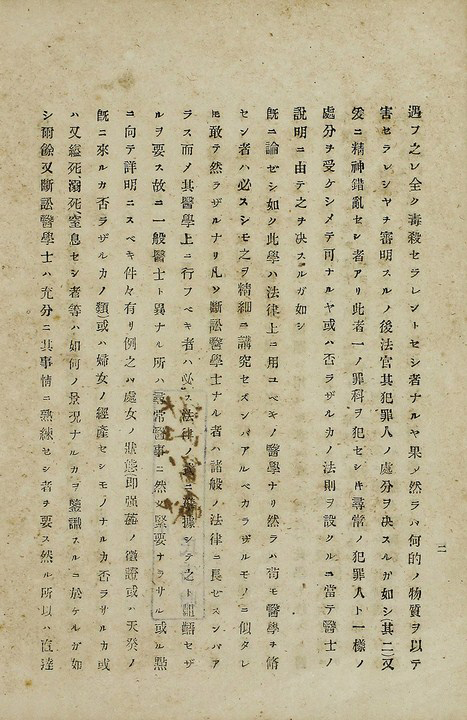 遇フ之レ全ク毒殺セラレントセシ者ナルヤ果〆然ラハ何的ノ物質ヲ以テ
害セラレシヤヲ審明スルノ後法官其犯罪人ノ處分ヲ决スルガ如シ(其二)又
爰ニ精神錯亂セシ者アリ此者一ノ罪科ヲ犯セシ𪜈尋常ノ犯罪人ト一樣ノ
處分ヲ受ケシメテ可ナルヤ或ハ否ラザルカノ法則ヲ設クルニ當テ醫士ノ
說明ニ由テ之ヲ决スルガ如シ
旣ニ論セシ如ク此學ハ法律上ニ用ユベキノ醫學ナリ然ラハ苟モ醫學ヲ脩
セシ者ハ必スシモ之ヲ精細ニ講究セズンバアルベカラザルモノニ似タレ
𪜈敢テ然ラザルナリ凡ソ斷訟醫學士ナル者ハ諸般ノ法律ニ長セズンバア
ラス而〆其醫學上ニ行フベキ者ハ必ス法律ノ ニ 據シテ之ト齟齬セザ
ルヲ要ス故ニ一般醫士ト異ナル所ハ尋常醫事ニ然 緊要ナラザル或ル點
ニ向テ詳明ニスベキ件々有リ例之ハ處女ノ狀態卽强 ノ徵證或ハ天癸ノ
旣ニ來ルカ否ラザルカノ類或ハ婦女ノ經產セシモノナルカ否ラサルカ或
ハ又縊死溺死窒息セシ者等ハ如何ノ景況ナルカヲ鑒識スルニ於ケルガ如
シ爾餘又斷訟醫學士ハ充分ニ其事情ニ熟練セシ者ヲ要ス然ル所以ハ直達
二